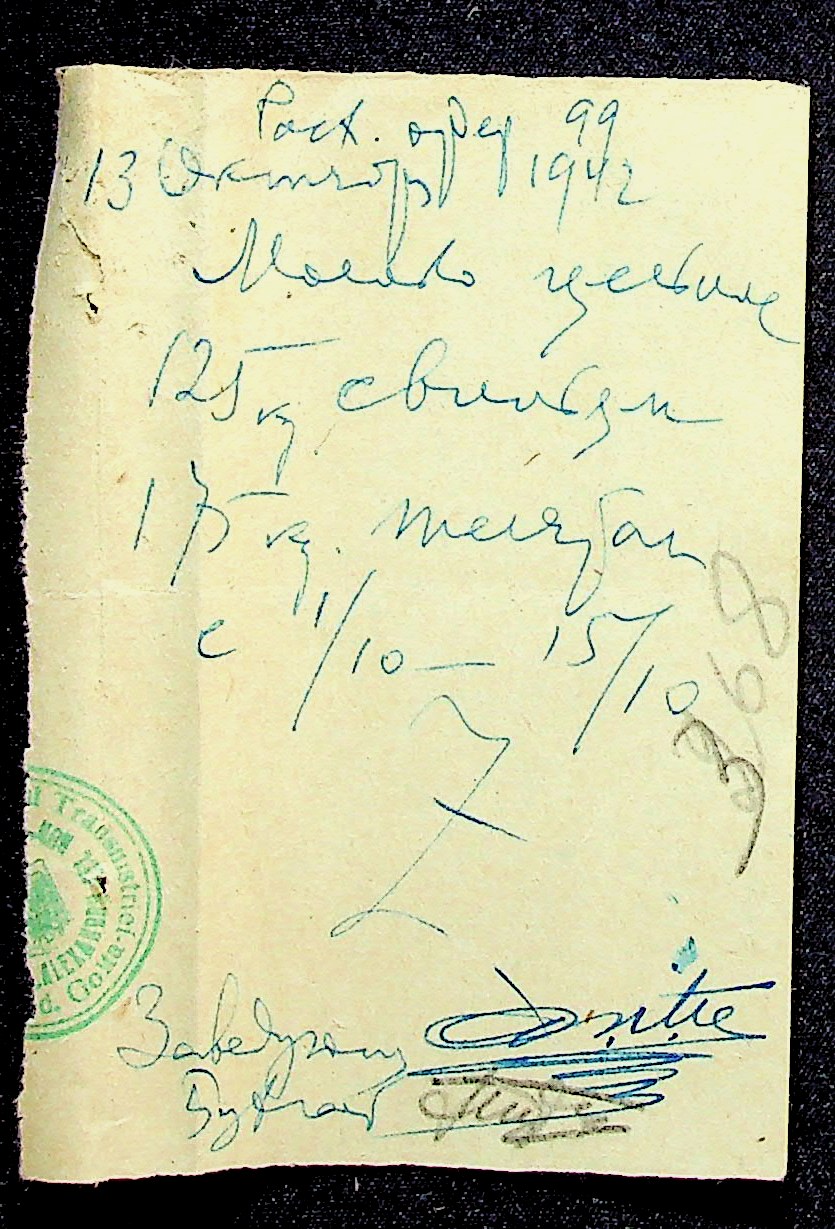 Расх. ордер 99
13 Октябр 1942
Молоко цельное
125 кг свинбам
175 кг. телятам
с 1/10 — 15/10
Z
368
Transnistriei
ALEXANDR
d. Golta
Заведующ
Бухгал